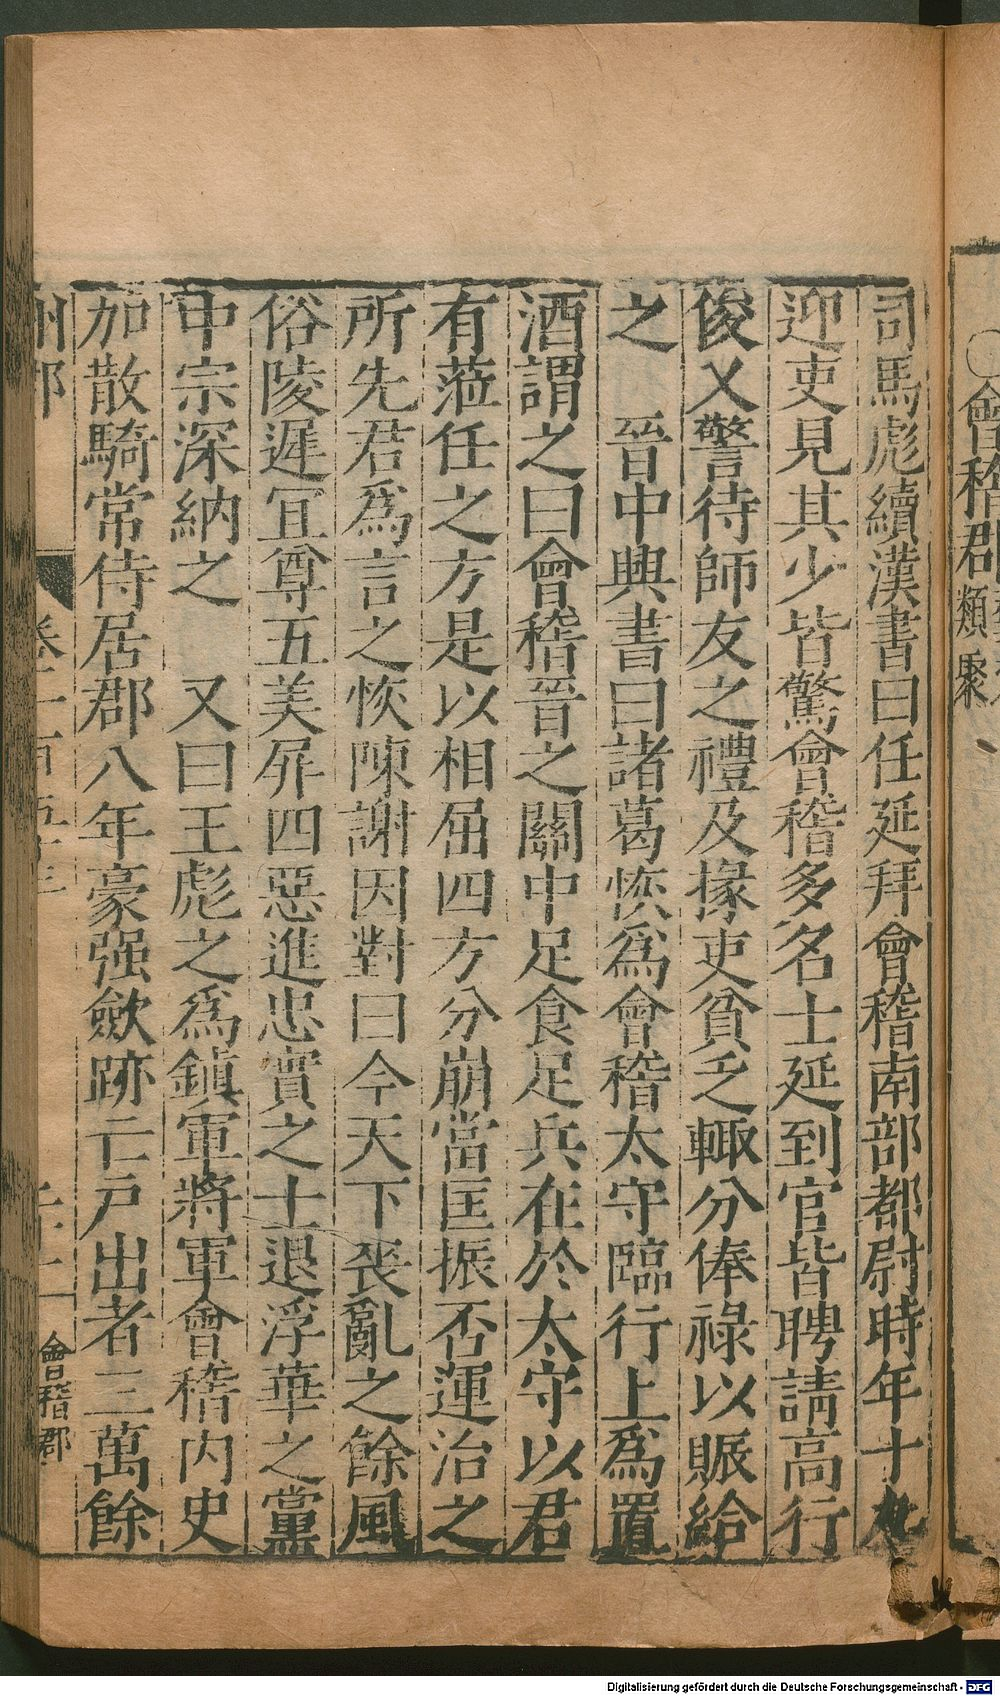 〇會稽郡類聚
司馬彪續漢書曰任延拜會稽南部都尉時年十九
迎吏見其少皆驚會稽多名士延到官皆聘請高行
俊乂警待師友之禮及掾吏貧乏輙分俸祿以賑給
之　晉中興書曰諸葛恢爲會稽太守臨行上爲置
酒謂之曰會稽晉之關中足食足兵在於太守以君
有蒞任之方是以相屈四方分崩當匡振否運治之
所先君爲言之恢陳謝因對曰今天下喪亂之餘風
俗陵遲冝尊五美屏四惡進忠實之士退浮華之黨
中宗深納之　又曰王彪之爲鎮軍將軍會稽內史
加散騎常侍居郡八年豪强歛跡亡戸出者三萬餘
州郡
會稽郡
Digitalisierung gefördert durch die Deutsche Forschungsgemeinschaft - DFG